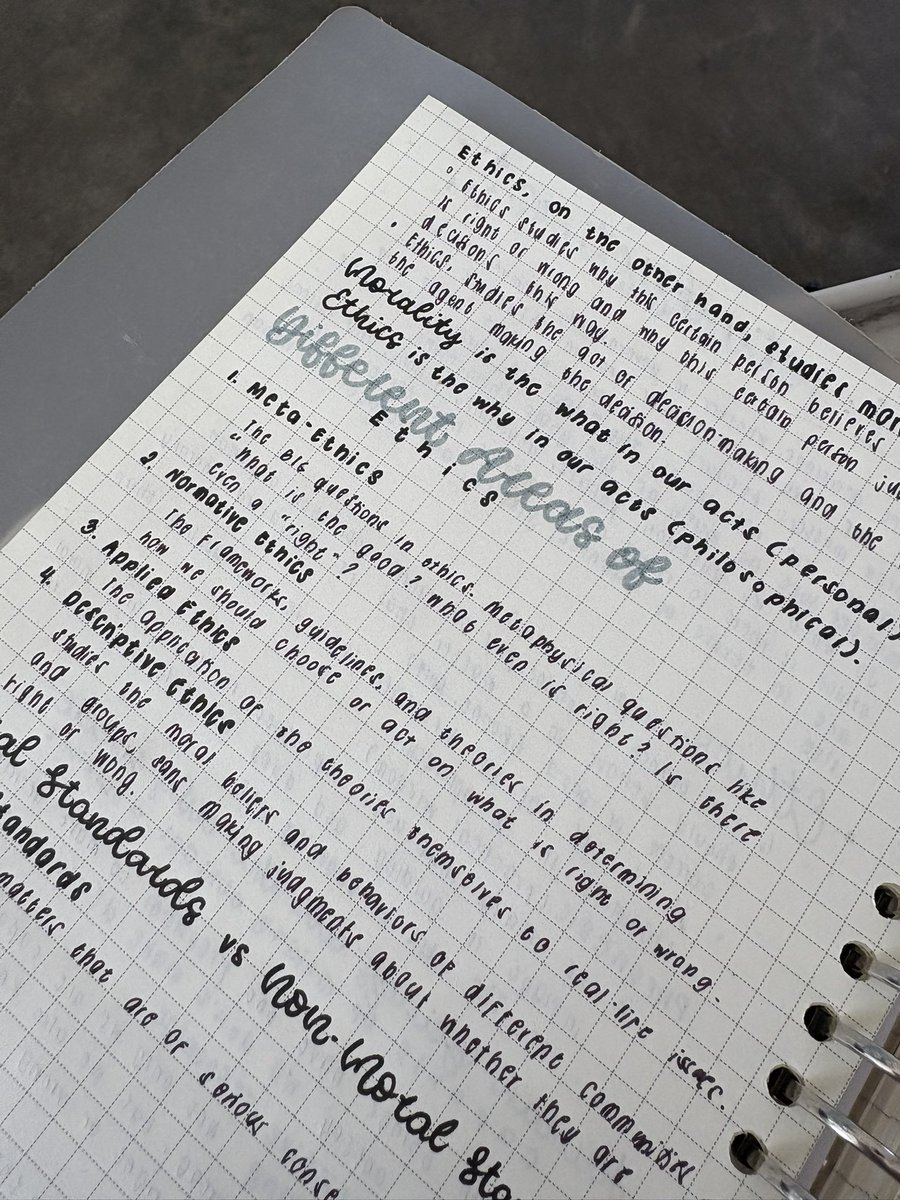 Ethics, on the other hand, studies
◦ Ethics studies why this certain person believes
is right or wrong and why this certain person
decisions this way.
• Ethics, studies the act of decision making and the
the agent making the decision.
Morality is the what in our acts (personal)
Ethics is the why in our acts (philosophical).
Different Areas of
Ethics
1. Meta-Ethics
The big questions in ethics. Metaphysical questions like
"what is the good? what even is right? Is there
even a "right"?
2. Normative Ethics
The frameworks, guidelines, and theories in determining
how we should choose or act on what is right or wrong.
3. Applied Ethics
The application of the theories themselves to real-life issues.
4. Descriptive Ethics
studies the moral beliefs and behaviors of different communities
and groups, sans making judgments about whether they are
right or wrong.
Standards vs Non-Moral
matters that are of serious